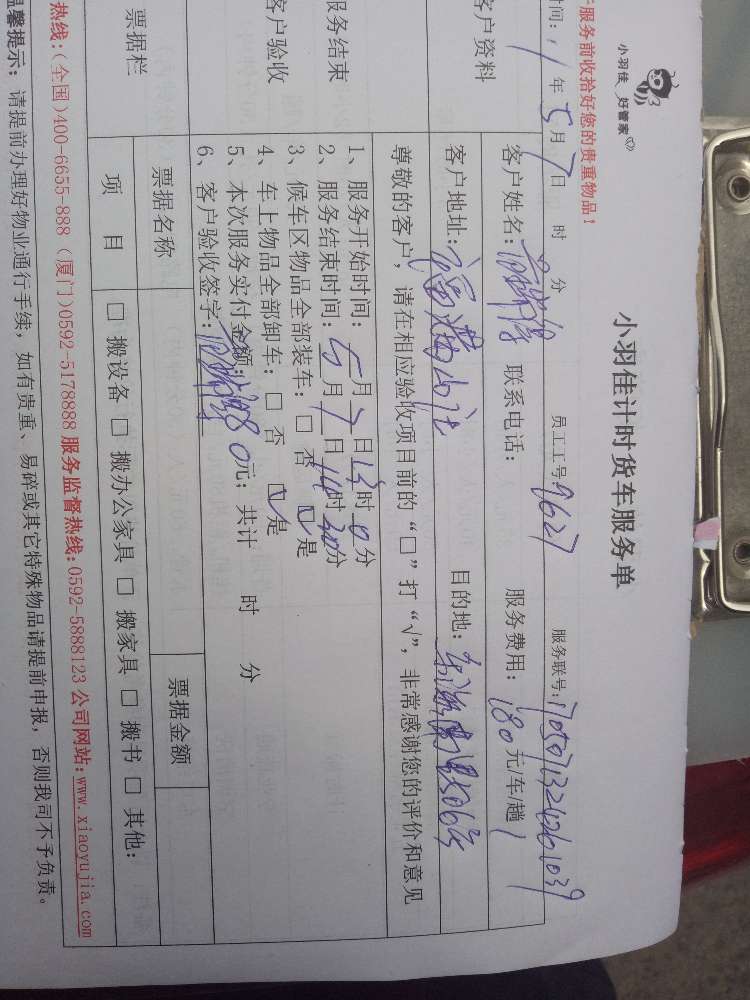 小羽佳 好管家
小羽佳计时货车服务单
服务前收拾好您的贵重物品！
时间: 年5月7日 时 分 员工工号9627 服务联号:
客户资料
客户姓名: 联系电话: 服务费用: 180元/车/趟
客户地址: 目的地:
尊敬的客户，请在相应验收项目前的“□”打“√”，非常感谢您的评价和意见
服务结束
客户验收
1、服务开始时间: 月 日13时0分
2、服务结束时间: 5月7日14时30分
3、候车区物品全部装车: □ 否 ☑ 是
4、车上物品全部卸车: □ 否 ☑ 是
5、本次服务实付金额: 180元; 共计 时 分
6、客户验收签字:
票据栏
票据名称 票据金额
项 目 □ 搬设备 □ 搬办公家具 □ 搬家具 □ 搬书 □ 其他:
热线:(全国)400-6655-888 (厦门)0592-5178888 服务监督热线:0592-5888123 公司网站:www.xiaoyujia.com
温馨提示: 请提前办理好物业通行手续，如有贵重、易碎或其它特殊物品请提前申报，否则我司不予负责。